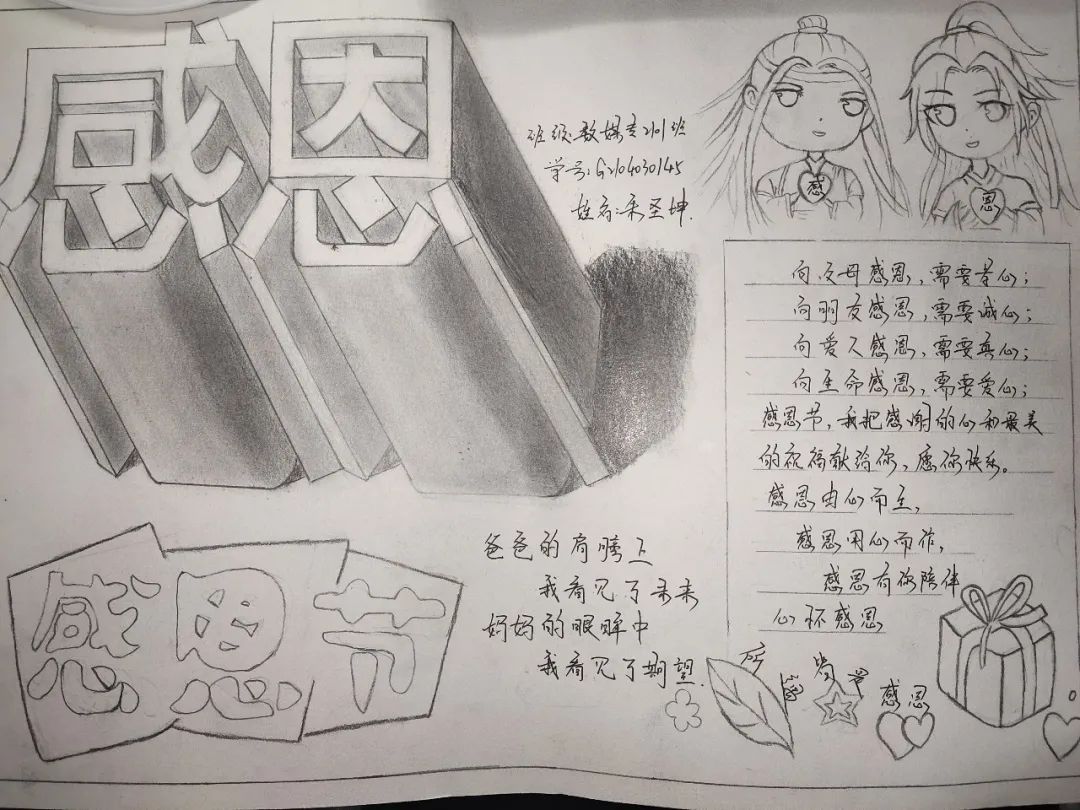 感恩
班级:数媒专2101班
学号:G2104030145
姓名:朱圣坤.
感
恩
向父母感恩,需要孝心;
向朋友感恩,需要诚心;
向爱人感恩,需要真心;
向生命感恩,需要爱心;
感恩节,我把感谢的心和最美
的祝福献给你,愿你快乐。
感恩由心而生,
感恩用心而作,
感恩有你陪伴
心怀感恩
感恩节
爸爸的肩膀上
我看见了未来
妈妈的眼眸中
我看见了期望.
所
遇
皆是
感恩